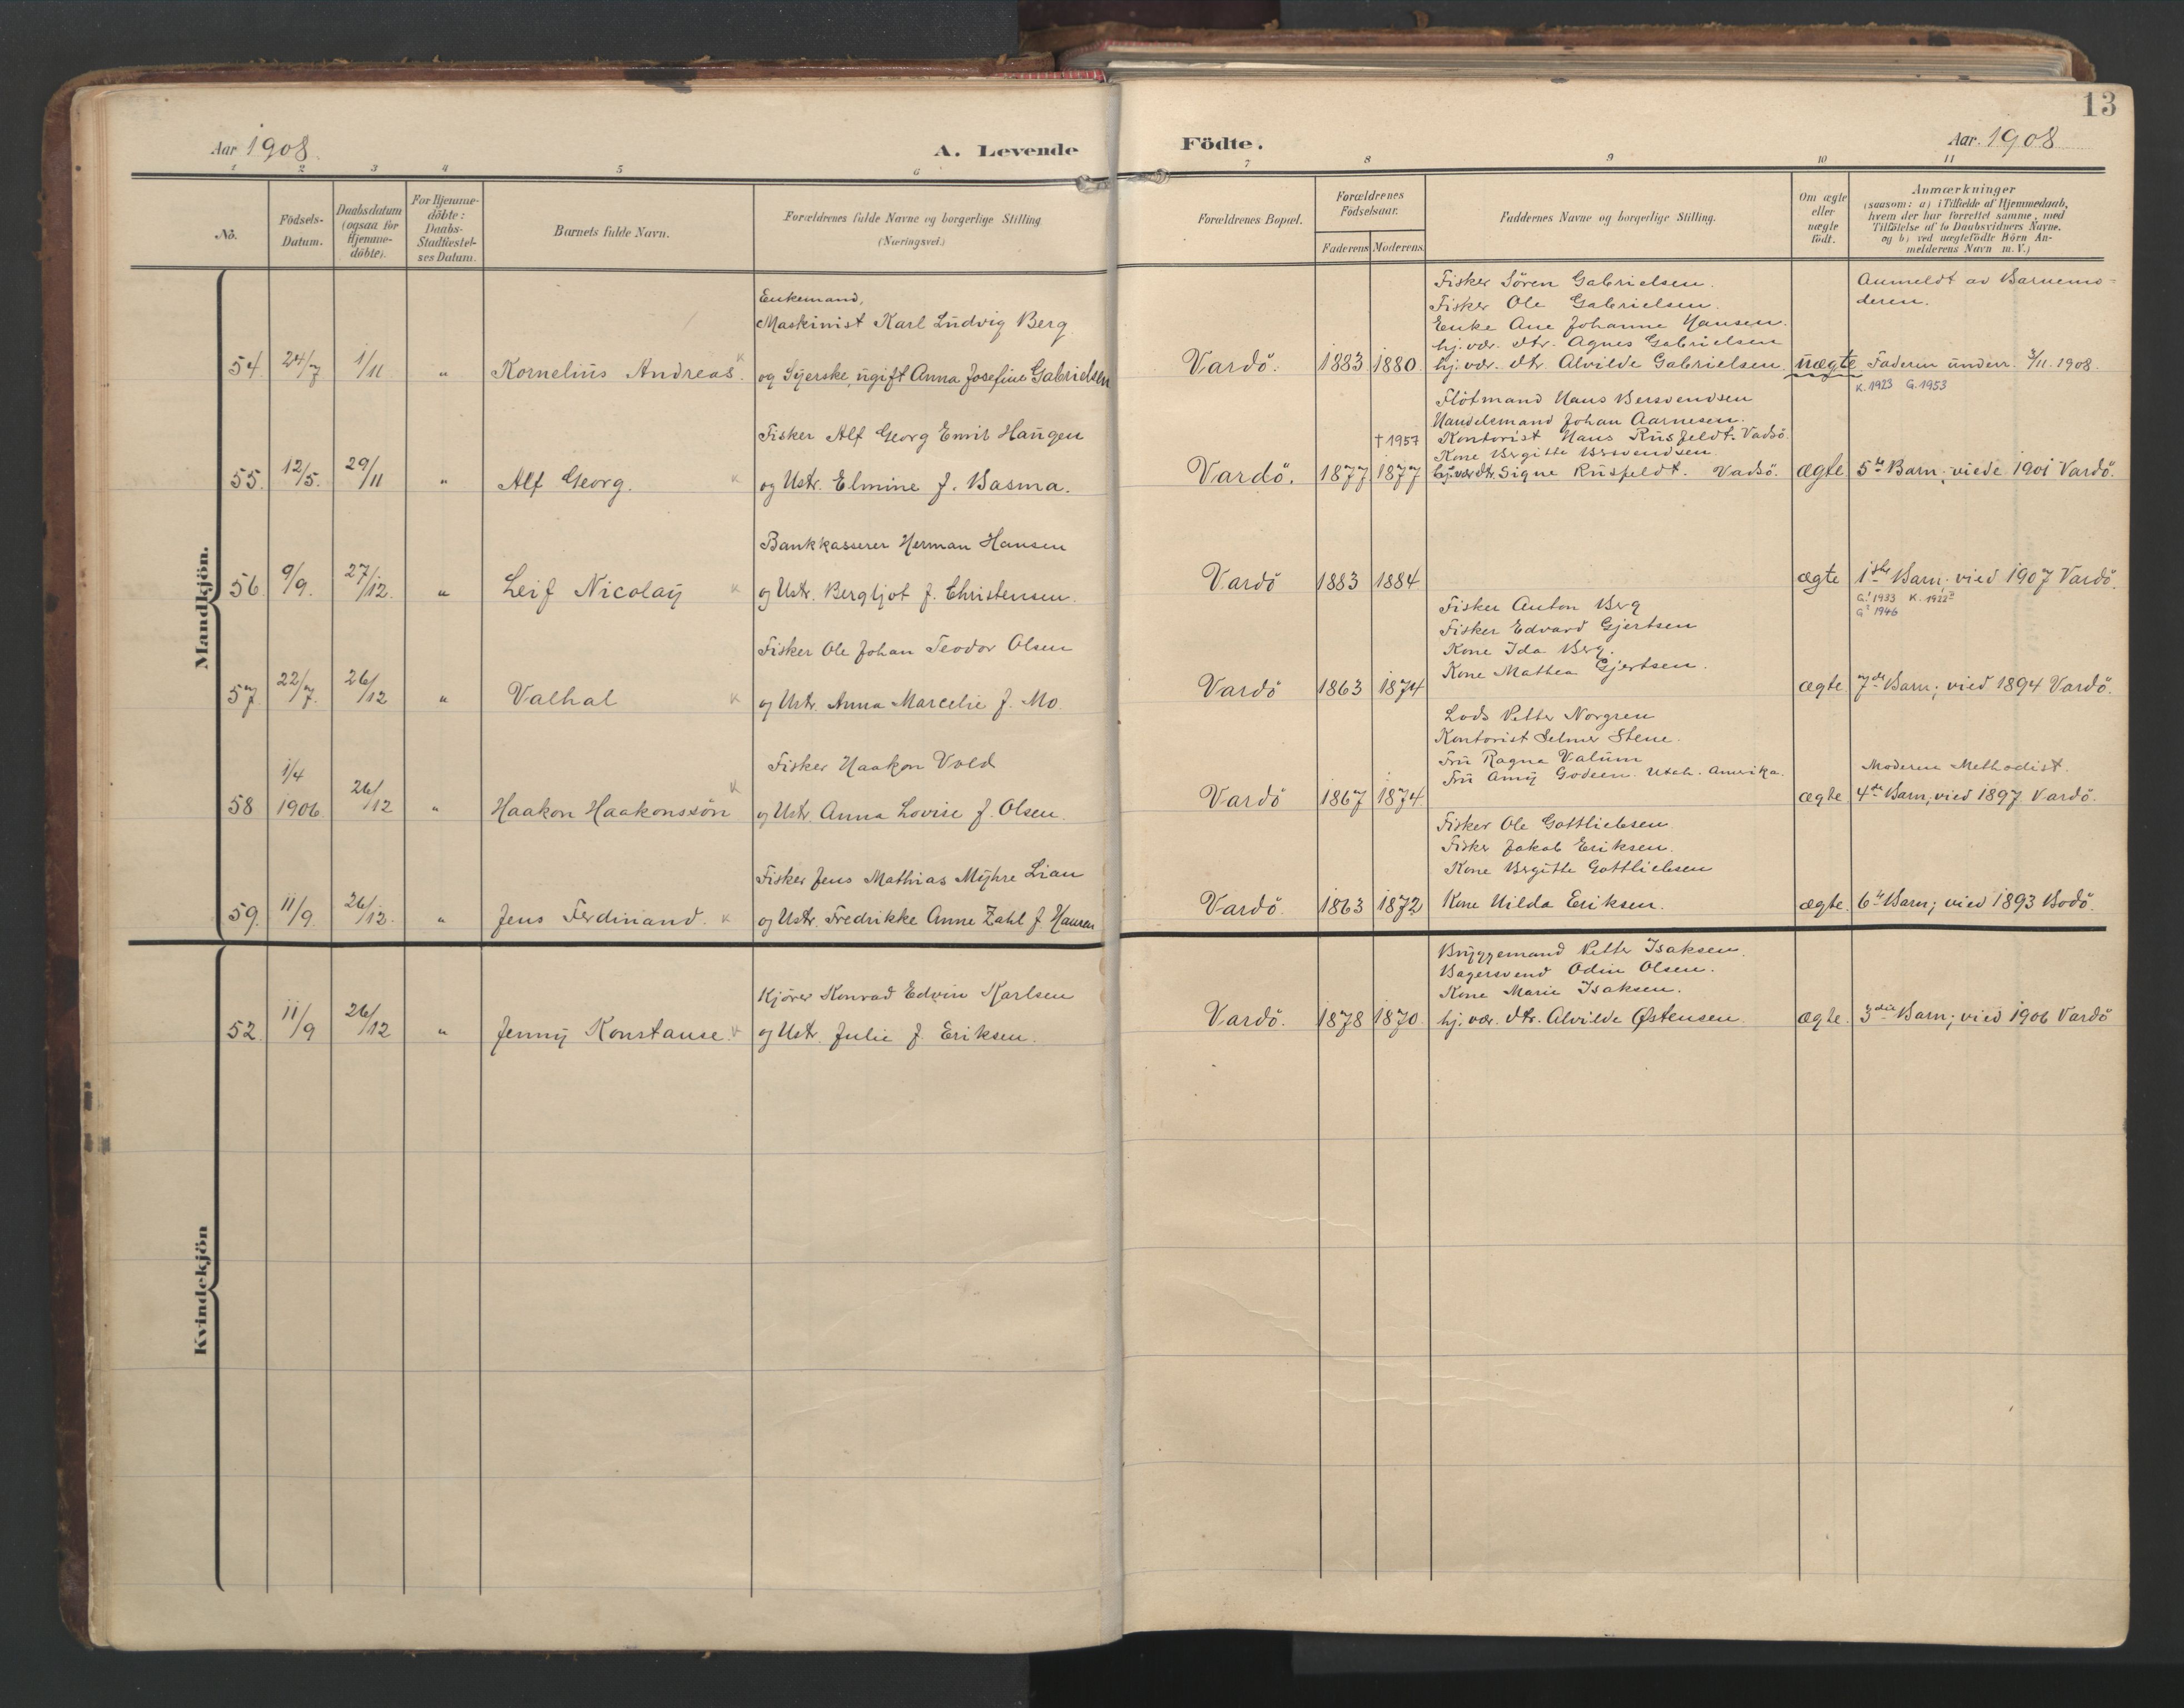 13
Aar 1908.
A. Levende
Födte.
Aar. 1908
1 2 3 4 5 6
7 8 9 10 11
No.
Födsels-
Datum.
Daabsdatum
(ogsaa for
Hjemme-
döbte).
For Hjemme-
döbte:
Daabs-
Stadfæstel-
ses Datum.
Barnets fulde Navn.
Forældrenes fulde Navne og borgerlige Stilling
(Næringsvei.)
Forældrenes Bopæl.
Forældrenes
Födselsaar.
Faderens Moderens
Faddernes Navne og borgerlige Stilling.
Om ægte
eller
uægte
födt.
Anmærkninger
(saasom: a) i Tilfælde af Hjemmedaab,
hvem der har forrettet samme, med
Tilföielse af to Daabsvidners Navne.
og b) ved uægtefödte Börn An-
melderens Navn m. V.)
Mandkjön.
Enkemand,
Maskinist Karl Ludvig Berg
54. 24/7 1/11 " Kornelius Andreas. K og Syerske, ugift Anna Josefine Gabrielsen
Fisker Sören Gabrielsen.
Fisker Ole Gabrielsen.
Enke Ane Johanne Hansen.
hj. vær. dtr. Agnes Gabrielsen
Vardö. 1883 1880. hj. vær. dtr Alvilde Gabrielsen. uægte
Anmeldt av Barnemo-
deren.
Faderen underr. 3/11. 1908.
K. 1923 G. 1953
Fisker Alf Georg Emil Haugen
55. 12/5. 29/11 " Alf Georg. K og Ustr. Elmine f. Basma.
Flötmand Hans Bersvendsen
Handelsmand Johan Aarnesen.
† 1957 Kontorist Hans Rusfeldt. Vadsö.
Kone Bergitte Bersvendsen.
Vardö. 1877 1877 hj. vær dtr. Signe Rusfeldt. Vadsö. ægte 5te Barn; viede 1901 Vardö.
Bankkasserer Herman Hansen
56. 9/9. 27/12. " Leif Nicolay K og Ustr. Bergljot f. Christensen.
Vardö 1883 1884 ægte 1ste Barn; vied 1907 Vardö.
G.1 1933 K. 1922
G2 1946
Fisker Ole Johan Teodor Olsen
57. 22/7. 26/12 " Valhal K og Ustr. Anna Marcelie f. Mo.
Fisker Anton Berg
Fisker Edvard Gjertsen
Kone Ida Berg.
Kone Mathea Gjertsen.
Vardö 1863 1874 ægte. 7de Barn; vied 1894 Vardö.
Fisker Haakon Vold
58 1/4 1906. 26/12 " Haakon Haakonssön K og Ustr. Anna Lovise f. Olsen.
Lods Petter Norgren
Kontorist Selmer Stene.
Fru Ragna Valum
Fru Amy Godeen. Utah. Amerika.
Vardö 1867 1874 ægte
Moderen Methodist.
4de Barn, vied 1897 Vardö.
Fisker Jens Mathias Myhre Lian
59. 11/9. 26/12. " Jens Ferdinand. K og Ustr. Fredrikke Anne Zahl f. Hansen
Fisker Ole Gottliebsen
Fisker Jakob Eriksen.
Kone Bergitte Gottliebsen
Vardö. 1863 1872 Kone Hilda Eriksen. ægte. 6te Barn; vied 1893 Bodö.
Kvindekjön
Kjörer Konrad Edvin Karlsen
52. 11/9 26/12 " Jenny Konstanse. K og Ustr. Julie f. Eriksen.
Bryggemand Petter Isaksen.
Bagersvend Odin Olsen.
Kone Marie Isaksen.
Vardö. 1878 1870. hj. vær. dtr. Alvilde Østensen. ægte. 3die Barn; vied 1906 Vardö